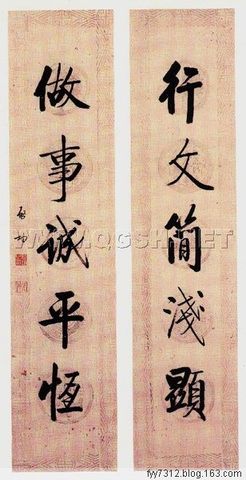 行文簡淺顯
做事誠平恆
啟功
WWW.QGSH.NET
fyy7312.blog.163.com